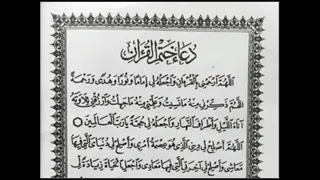 دُعَاءُ خَتْمِ الْقُرْآنِ
اَللّٰهُمَّ ارْحَمْنِي بِالْقُرْءَانِ وَاجْعَلْهُ لِي إِمَامًا وَنُورًا وَهُدًى وَرَحْمَةً
اَللّٰهُمَّ ذَكِّرْنِي مِنْهُ مَانَسِيتُ وَعَلِّمْنِي مِنْهُ مَاجَهِلْتُ وَارْزُقْنِي تِلَاوَتَهُ
آنَاءَ اللَّيْلِ وَأَطْرَافَ النَّهَارِ وَاجْعَلْهُ لِي حُجَّةً يَارَبَّ الْعَالَمِينَ
اَللّٰهُمَّ أَصْلِحْ لِي دِينِي الَّذِي هُوَ عِصْمَةُ أَمْرِي وَأَصْلِحْ لِي دُنْيَايَ الَّتِي فِيهَا
مَعَاشِي وَأَصْلِحْ لِي آخِرَتِي الَّتِي فِيهَا مَعَادِي وَاجْعَلِ الْحَيَاةَ زِيَادَةً لِي